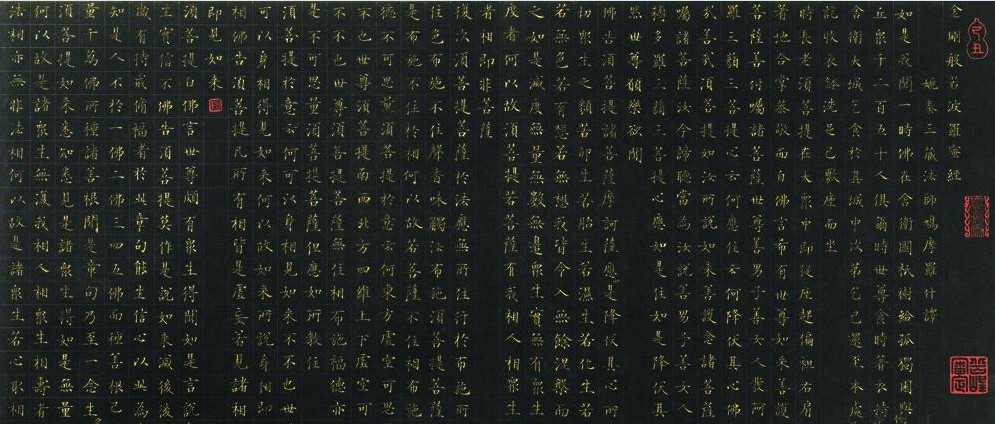 金剛般若波羅蜜經
姚秦三藏法師鳩摩羅什譯
如是我聞一時佛在舍衛國祇樹給孤獨園與
丘衆千二百五十人俱爾時世尊食時著衣持
舍衛大城乞食於其城中次第乞已還至本處
訖收衣鉢洗足已敷座而坐
時長老須菩提在大衆中即從座起偏袒右肩
著地合掌恭敬而白佛言希有世尊如來善護
菩薩善付囑諸菩薩世尊善男子善女人發阿
羅三藐三菩提心云何應住云何降伏其心佛
哉善哉須菩提如汝所說如來善護念諸菩薩
囑諸菩薩汝今諦聽當為汝說善男子善女人
耨多羅三藐三菩提心應如是住如是降伏其
然世尊願樂欲聞
佛告須菩提諸菩薩摩訶薩應如是降伏其心所
切衆生之類若卵生若胎生若濕生若化生若
若無色若有想若無想我皆令入無餘涅槃而
之如是滅度無量無數無邊衆生實無有衆生
度者何以故須菩提若菩薩有我相人相衆生
者相即非菩薩
復次須菩提菩薩於法應無所住行於布施所
住色布施不住聲香味觸法布施須菩提菩薩
是布施不住於相何以故若菩薩不住相布施
德不可思量須菩提於意云何東方虛空可思
不也世尊須菩提南西北方四維上下虛空可
不不也世尊須菩提菩薩無住相布施福德亦
是不可思量須菩提菩薩但應如所教住
須菩提於意云何可以身相見如來不不也世
可以身相得見如來何以故如來所說身相即
相佛告須菩提凡所有相皆是虛妄若見諸相
即見如來
須菩提白佛言世尊頗有衆生得聞如是言說
生實信不佛告須菩提莫作是說如來滅後後
歲有持戒修福者於此章句能生信心以此為
知是人不於一佛二佛三四五佛而種善根已
量千萬佛所種諸善根聞是章句乃至一念生
須菩提如來悉知悉見是諸衆生得如是無量
何以故是諸衆生無復我相人相衆生相壽者
法相亦無非法相何以故是諸衆生若心取相
己丑